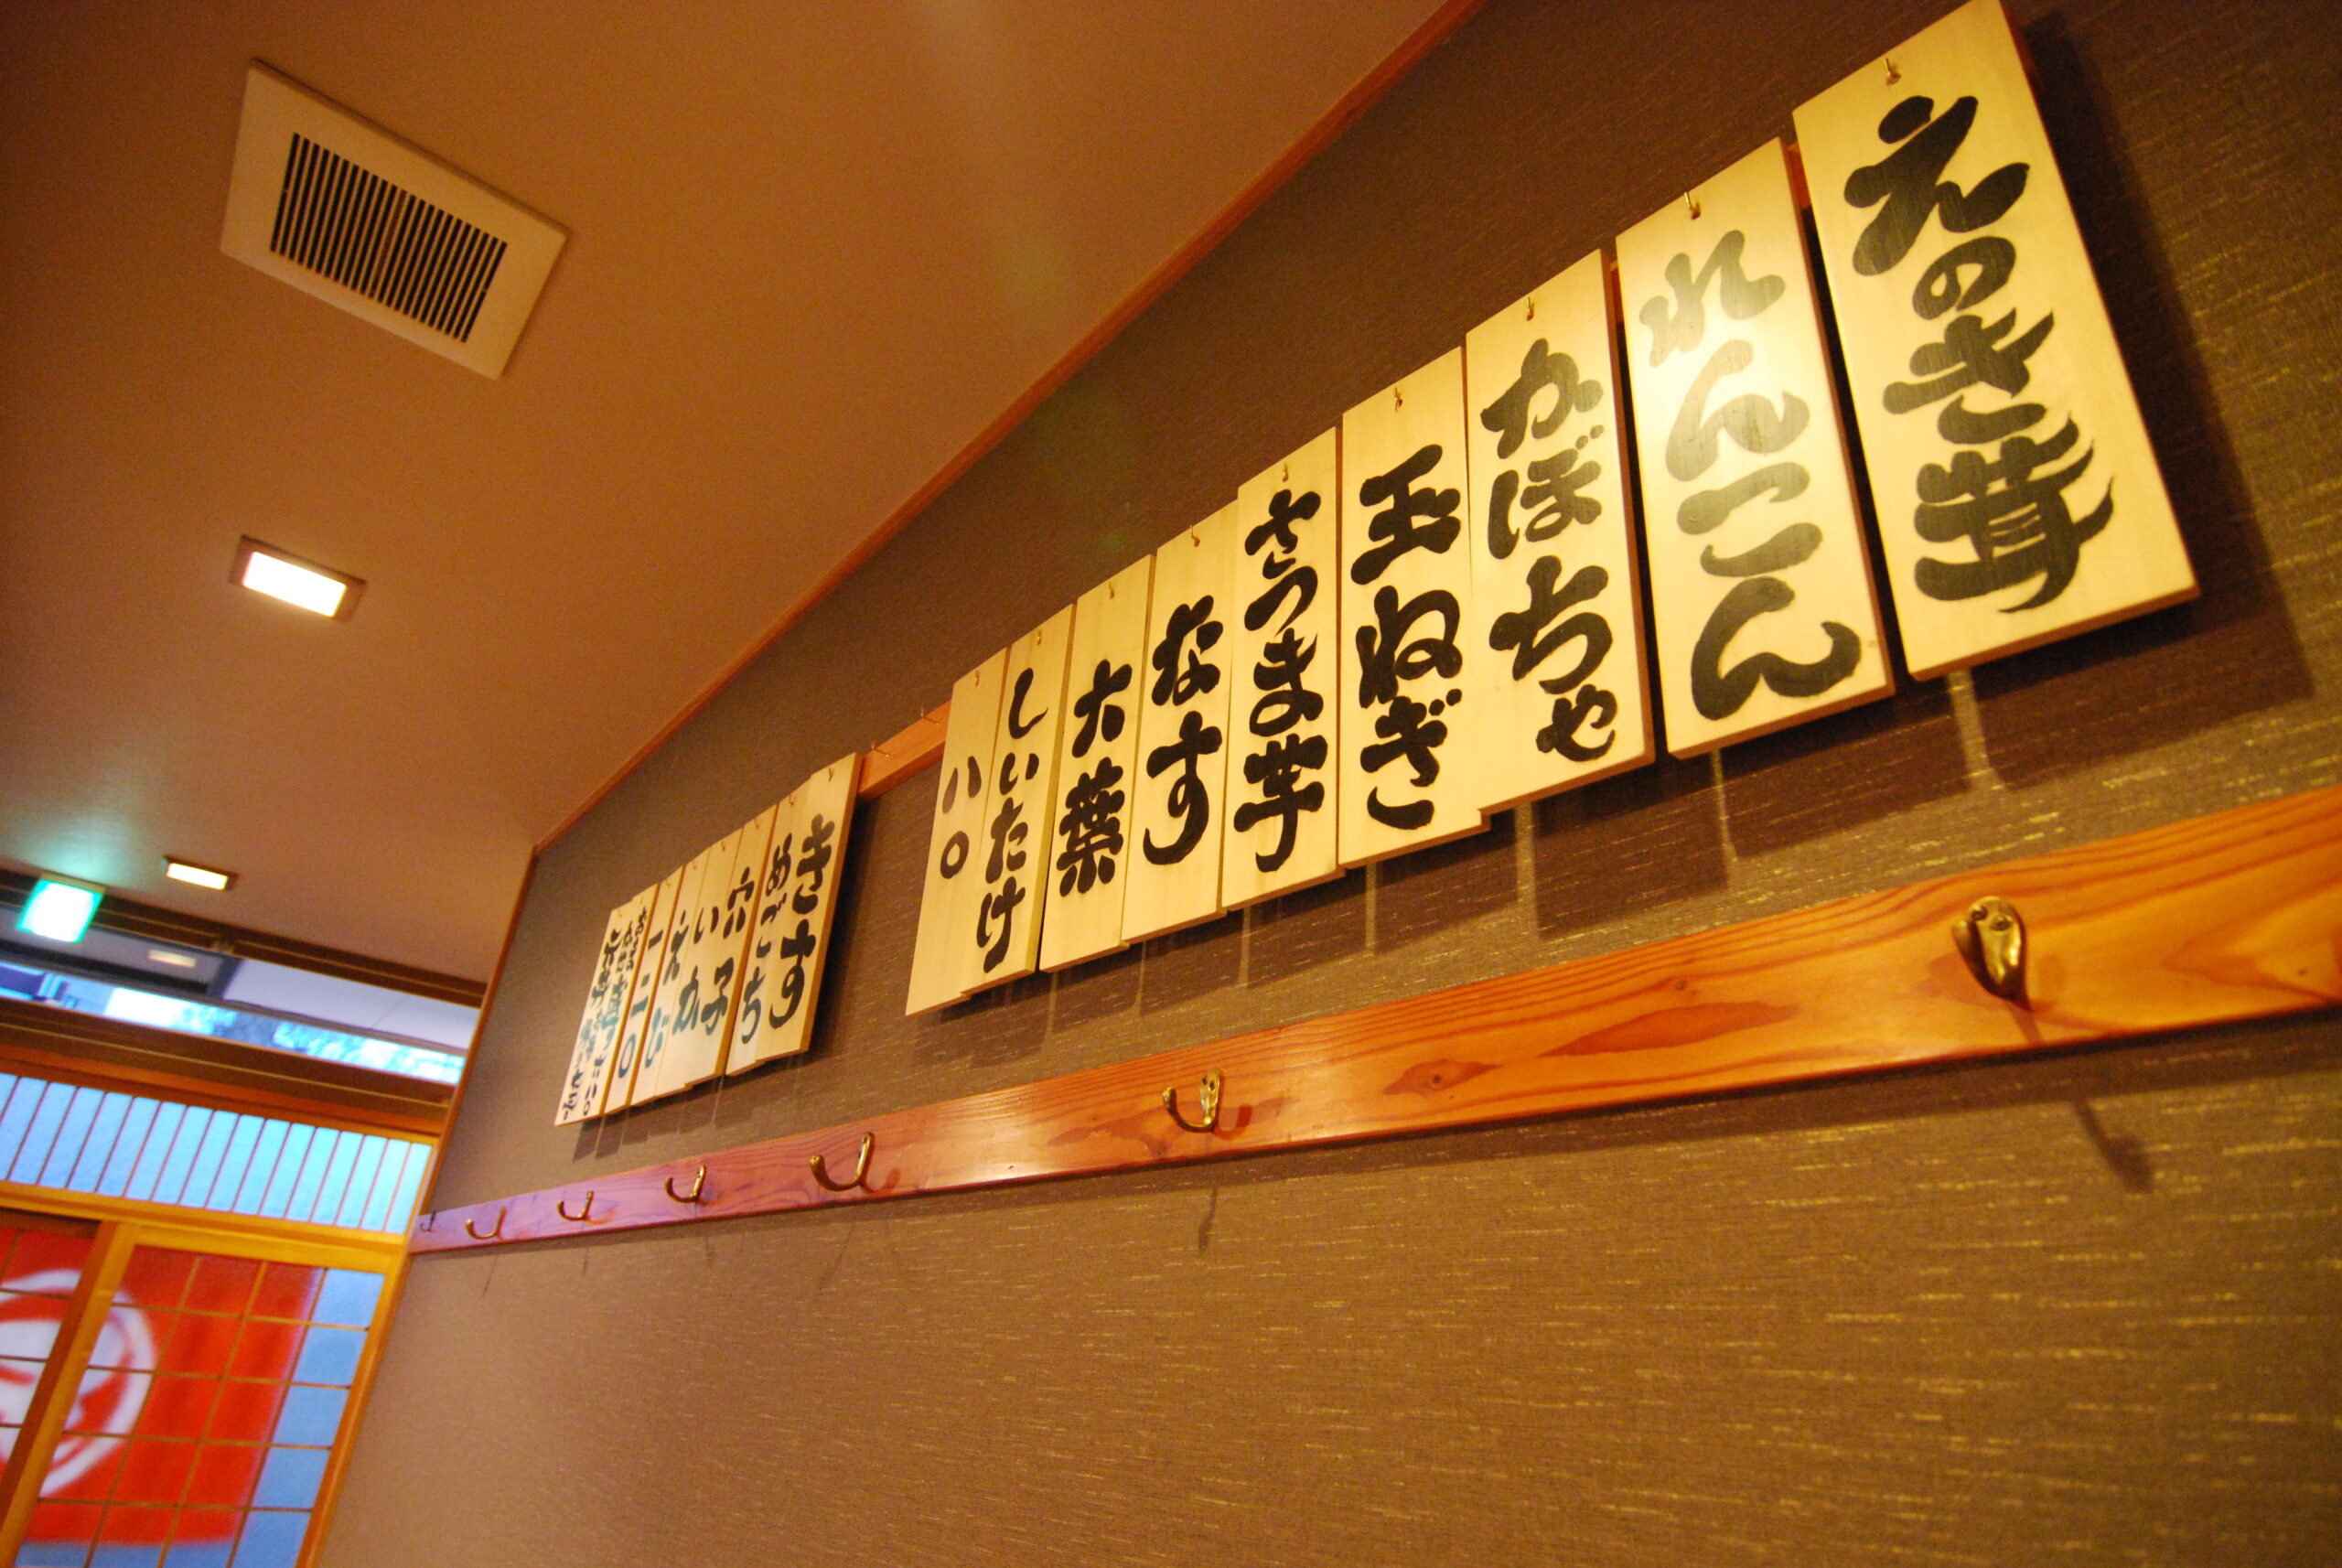 えのき茸
れんこん
かぼちゃ
玉ねぎ
さつま芋
なす
大葉
しいたけ
八〇
きす
めごち
穴子
いか
えび
一二〇